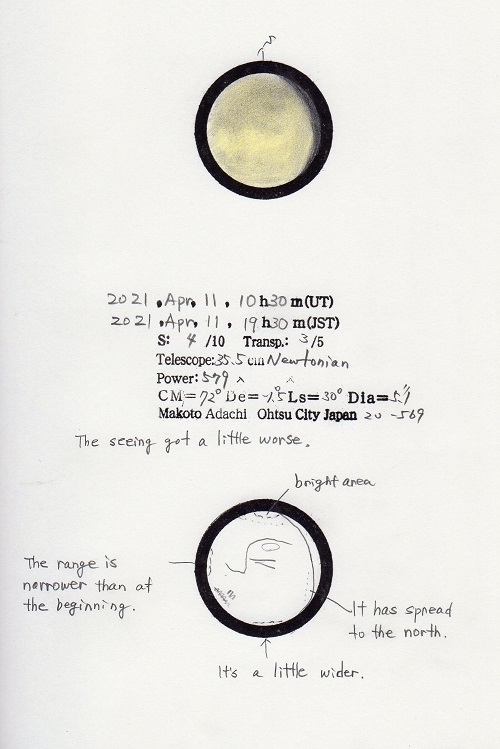 2021, Apr, 11, 10 h 30 m (UT)
2021, Apr, 11, 19 h 30 m (JST)
S: 4 /10 Transp.: 3 /5
Telescope: 35.5 cm Newtonian
Power: 579 x
CM= 72° De= -1.5° Ls= 30° Dia= 5.1"
Makoto Adachi Ohtsu City Japan 20-569
The seeing got a little worse.
bright area
The range is
narrower than at
the beginning.
It has spread
to the north.
It's a little wider.